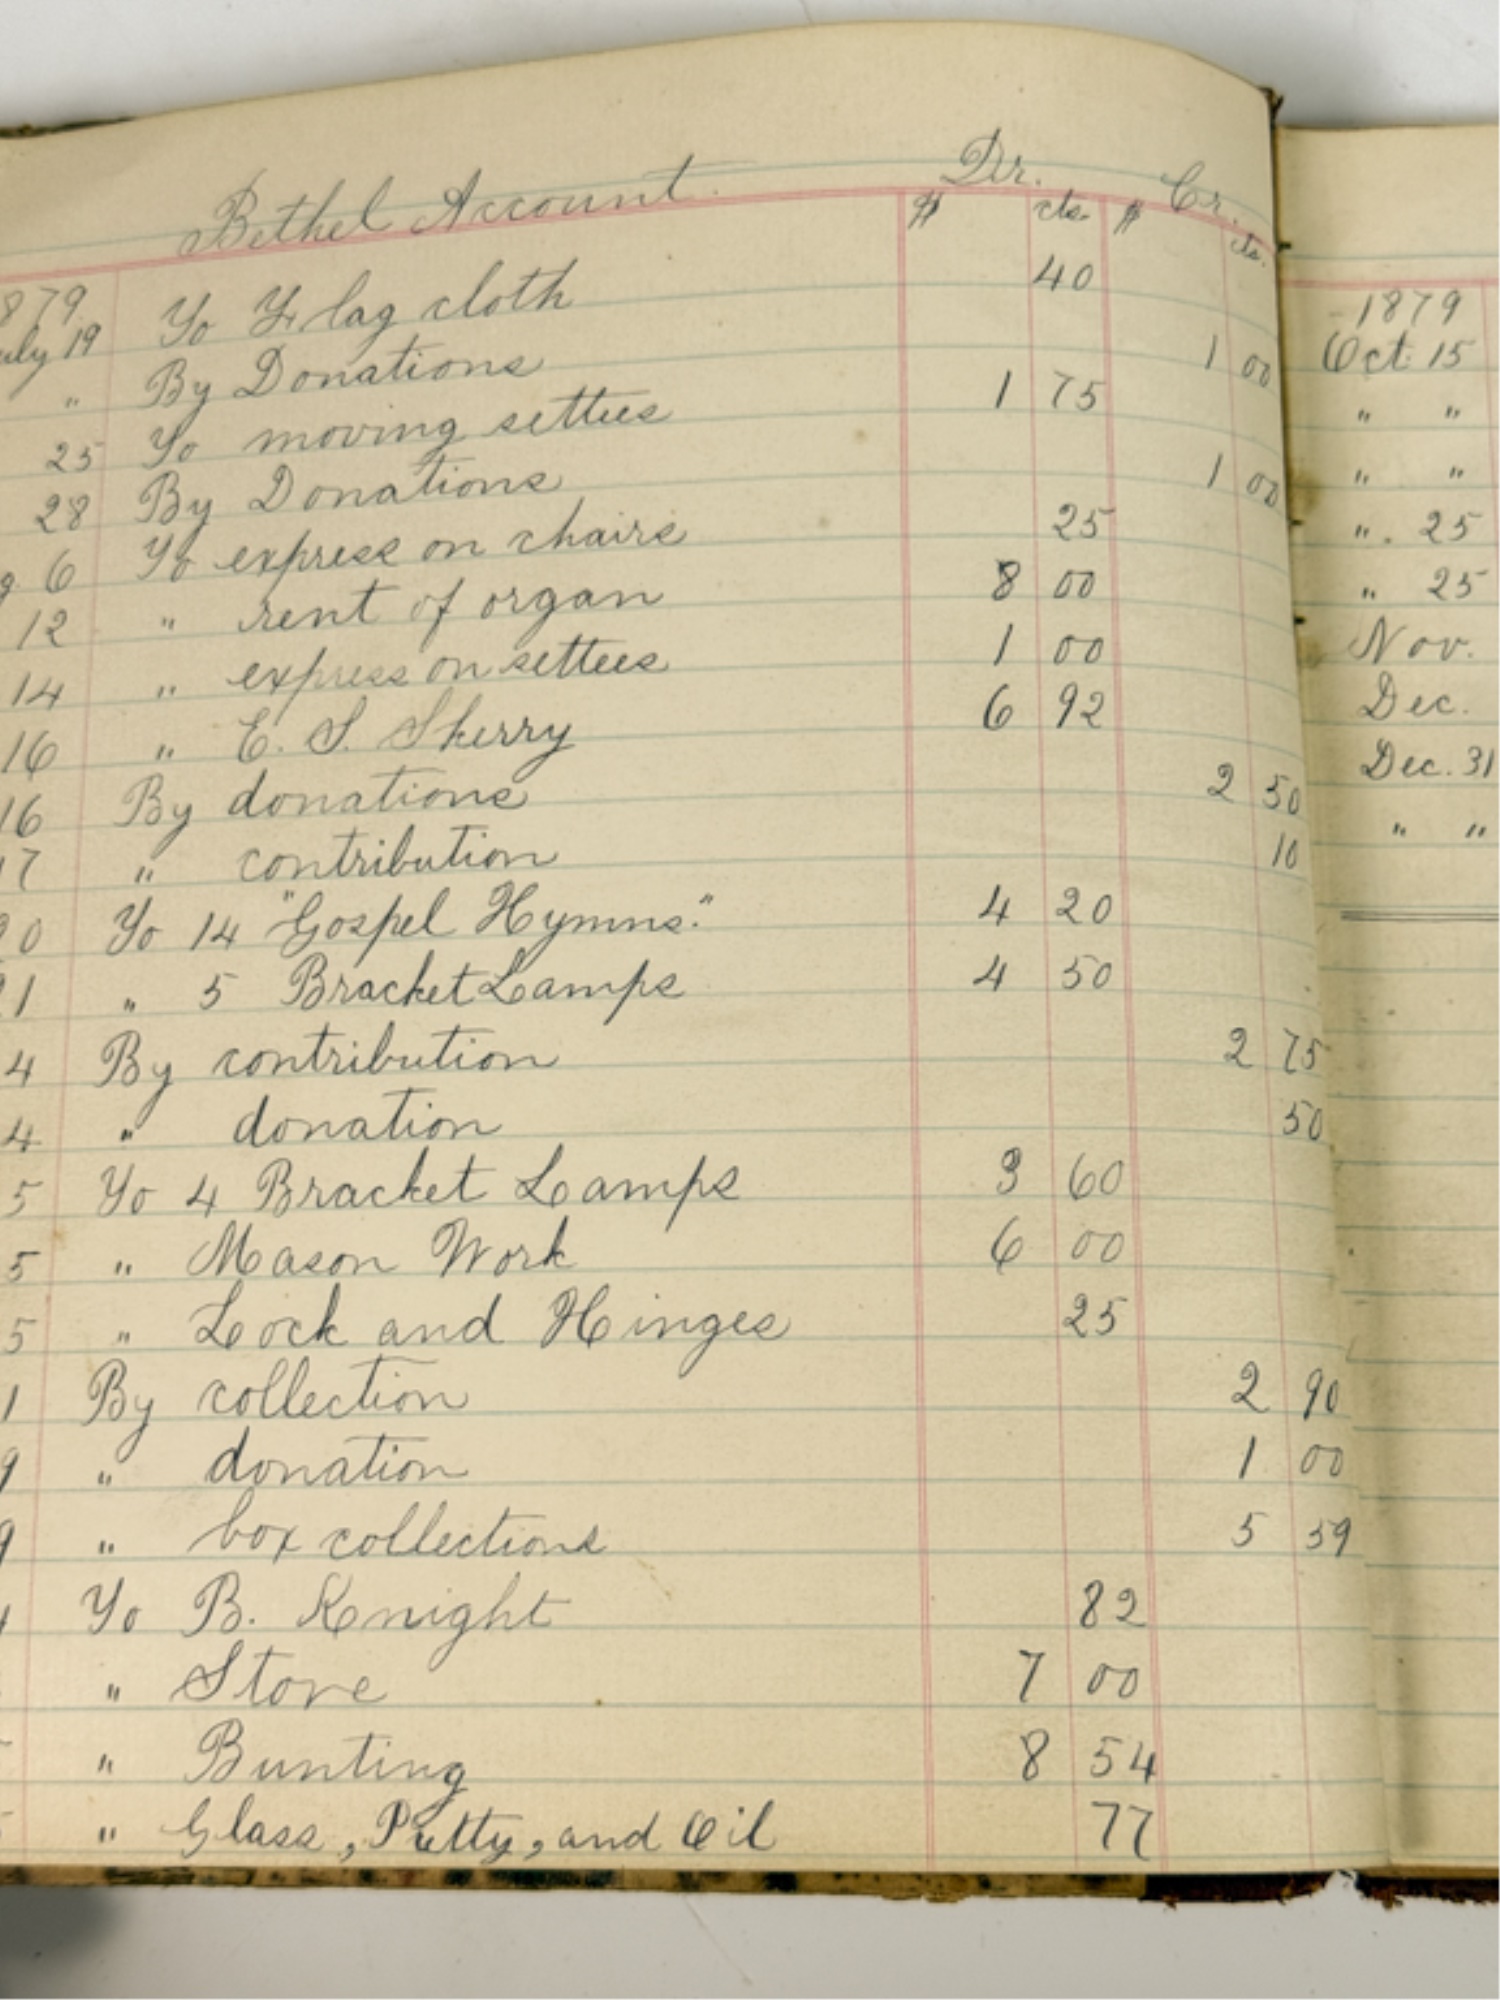 Bethel Account. Dr. Cr.
$ cts. $ cts.
1879
July 19 To Flag cloth 40
" By Donations 1 00
25 To moving settees 1 75
28 By Donations 1 00
6 To express on chairs 25
12 " rent of organ 8 00
14 " express on settees 1 00
16 " E. S. Skerry 6 92
16 By donations 2 50
17 " contribution 10
20 To 14 "Gospel Hymns." 4 20
21 " 5 Bracket Lamps 4 50
4 By contribution 2 75
4 " donation 50
5 To 4 Bracket Lamps 3 60
5 " Mason Work 6 00
5 " Lock and Hinges 25
1 By collection 2 90
9 " donation 1 00
9 " box collections 5 59
To B. Knight 82
" Stove 7 00
" Bunting 8 54
" Glass, Putty, and Oil 77
1879
Oct. 15
" "
" "
" . 25
" 25
Nov.
Dec.
Dec. 31
" "